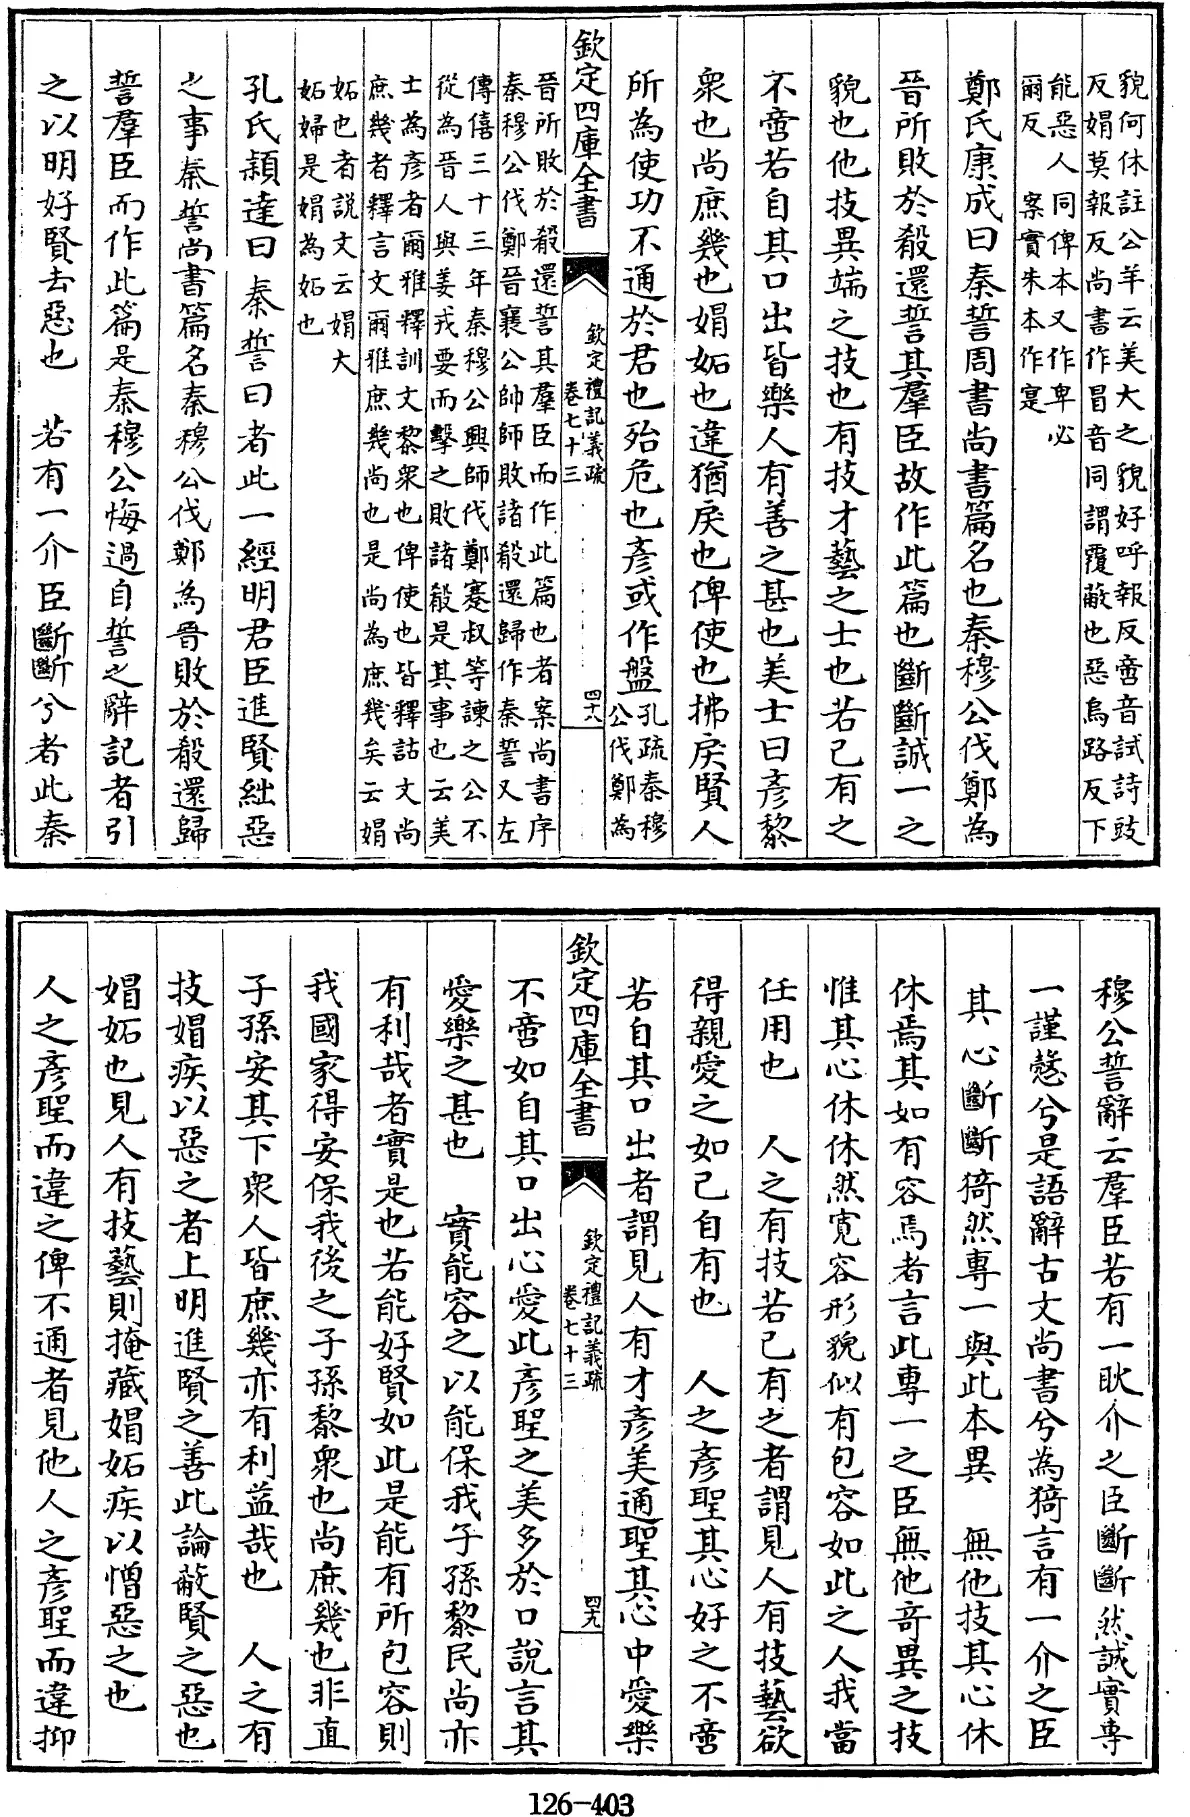 貌何休註公羊云美大之貌好呼報反啻音試詩豉
反娟莫報反尚書作冒音同謂覆蔽也惡烏路反下
能惡人同俾本又作卑必
爾反　案實朱本作寔
鄭氏康成曰秦誓周書尚書篇名也秦穆公伐鄭為
晉所敗於殽還誓其羣臣故作此篇也斷斷誠一之
貌也他技異端之技也有技才藝之士也若已有之
不啻若自其口出皆樂人有善之甚也美士曰彦黎
衆也尚庶幾也娟妬也違猶戾也俾使也拂戾賢人
所為使功不通於君也殆危也彦或作盤孔疏秦穆
公伐鄭為
欽定四庫全書
欽定禮記義疏
卷七十三
四十八
晉所敗於殽還誓其羣臣而作此篇也者案尚書序
秦穆公伐鄭晉襄公帥師敗諸殽還歸作秦誓又左
傳僖三十三年秦穆公興師伐鄭蹇叔等諫之公不
從為晉人與姜戎要而擊之敗諸殽是其事也云美
士為彦者爾雅釋訓文黎衆也俾使也皆釋詁文尚
庶幾者釋言文爾雅庶幾尚也是尚為庶幾矣云娟
妬也者説文云娟大
妬婦是娟為妬也
孔氏穎達曰秦誓曰者此一經明君臣進賢絀惡
之事秦誓尚書篇名秦穆公伐鄭為晉敗於殽還歸
誓羣臣而作此篇是秦穆公悔過自誓之辭記者引
之以明好賢去惡也　若有一介臣斷斷兮者此秦
穆公誓辭云羣臣若有一耿介之臣斷斷然誠實專
一謹慤兮是語辭古文尚書兮為猗言有一介之臣
其心斷斷猗然專一與此本異　無他技其心休
休焉其如有容焉者言此專一之臣無他竒異之技
惟其心休休然寛容形貌似有包容如此之人我當
任用也　人之有技若已有之者謂見人有技藝欲
得親愛之如己自有也　人之彦聖其心好之不啻
若自其口出者謂見人有才彦美通聖其心中愛樂
欽定四庫全書
欽定禮記義疏
卷七十三
四十九
不啻如自其口出心愛此彦聖之美多於口説言其
愛樂之甚也　實能容之以能保我子孫黎民尚亦
有利哉者實是也若能好賢如此是能有所包容則
我國家得安保我後之子孫黎衆也尚庶幾也非直
子孫安其下衆人皆庶幾亦有利益哉也　人之有
技娟疾以惡之者上明進賢之善此論蔽賢之惡也
娟妬也見人有技藝則掩藏娟妬疾以憎惡之也
人之彦聖而違之俾不通者見他人之彦聖而違抑
126-403